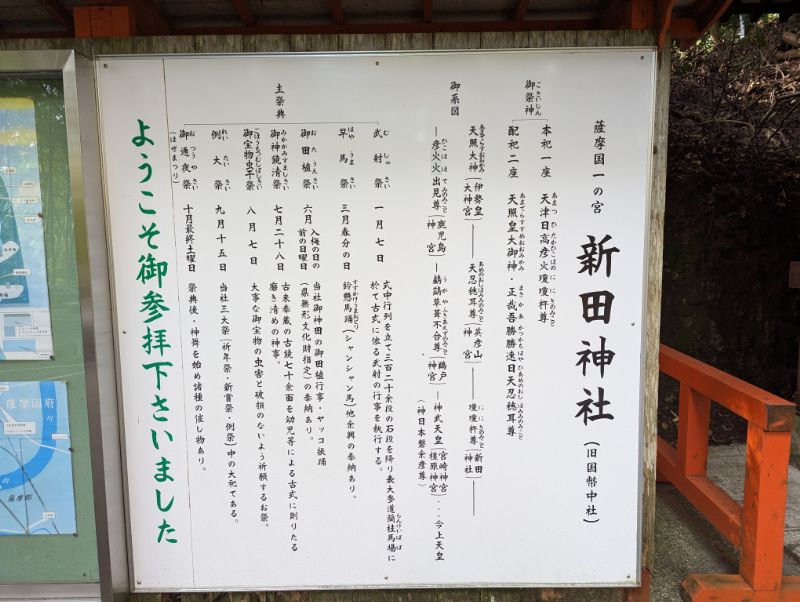 薩摩国一の宮
新田神社（旧国幣中社）
御祭神
本祀一座　天津日高彦火瓊瓊杵尊
配祀二座　天照皇大御神・正哉吾勝勝速日天忍穂耳尊
御系図
天照大神（伊勢皇大神宮）――天忍穂耳尊（英彦山神宮）――瓊瓊杵尊（新田神社）――
―彦火火出見尊（鹿児島神宮）―鸕鷀草葺不合尊（鵜戸神宮）―神武天皇（宮崎神宮 橿原神宮）・・・今上天皇
（神日本磐余彦尊）
主祭典
武射祭　一月七日　式中行列を立て三百二十余段の石段を降り表大参道蘭桂馬場に
於て古式に依る武射の行事を執行する。
早馬祭　三月春分の日　鈴懸馬踊（シャンシャン馬）他余興の奉納あり。
御田植祭　六月 入梅の日の前の日曜日　当社御神田の御田植行事・ヤッコ振踊
（県無形文化財指定）の奉納あり。
御神鏡清祭　七月二十八日　古来奉蔵の古鏡七十余面を幼児等による古式に則りたる
磨き清めの神事。
御宝物虫干祭　八月七日　大事な御宝物の虫害と破損のないよう祈願するお祭。
例大祭　九月十五日　当社三大祭（祈年祭・新嘗祭・例祭）中の大祀である。
御通夜祭　十月最終土曜日　祭典後・神舞を始め諸種の催し物あり。
（はせまつり）
ようこそ御参拝下さいました
薩摩国府